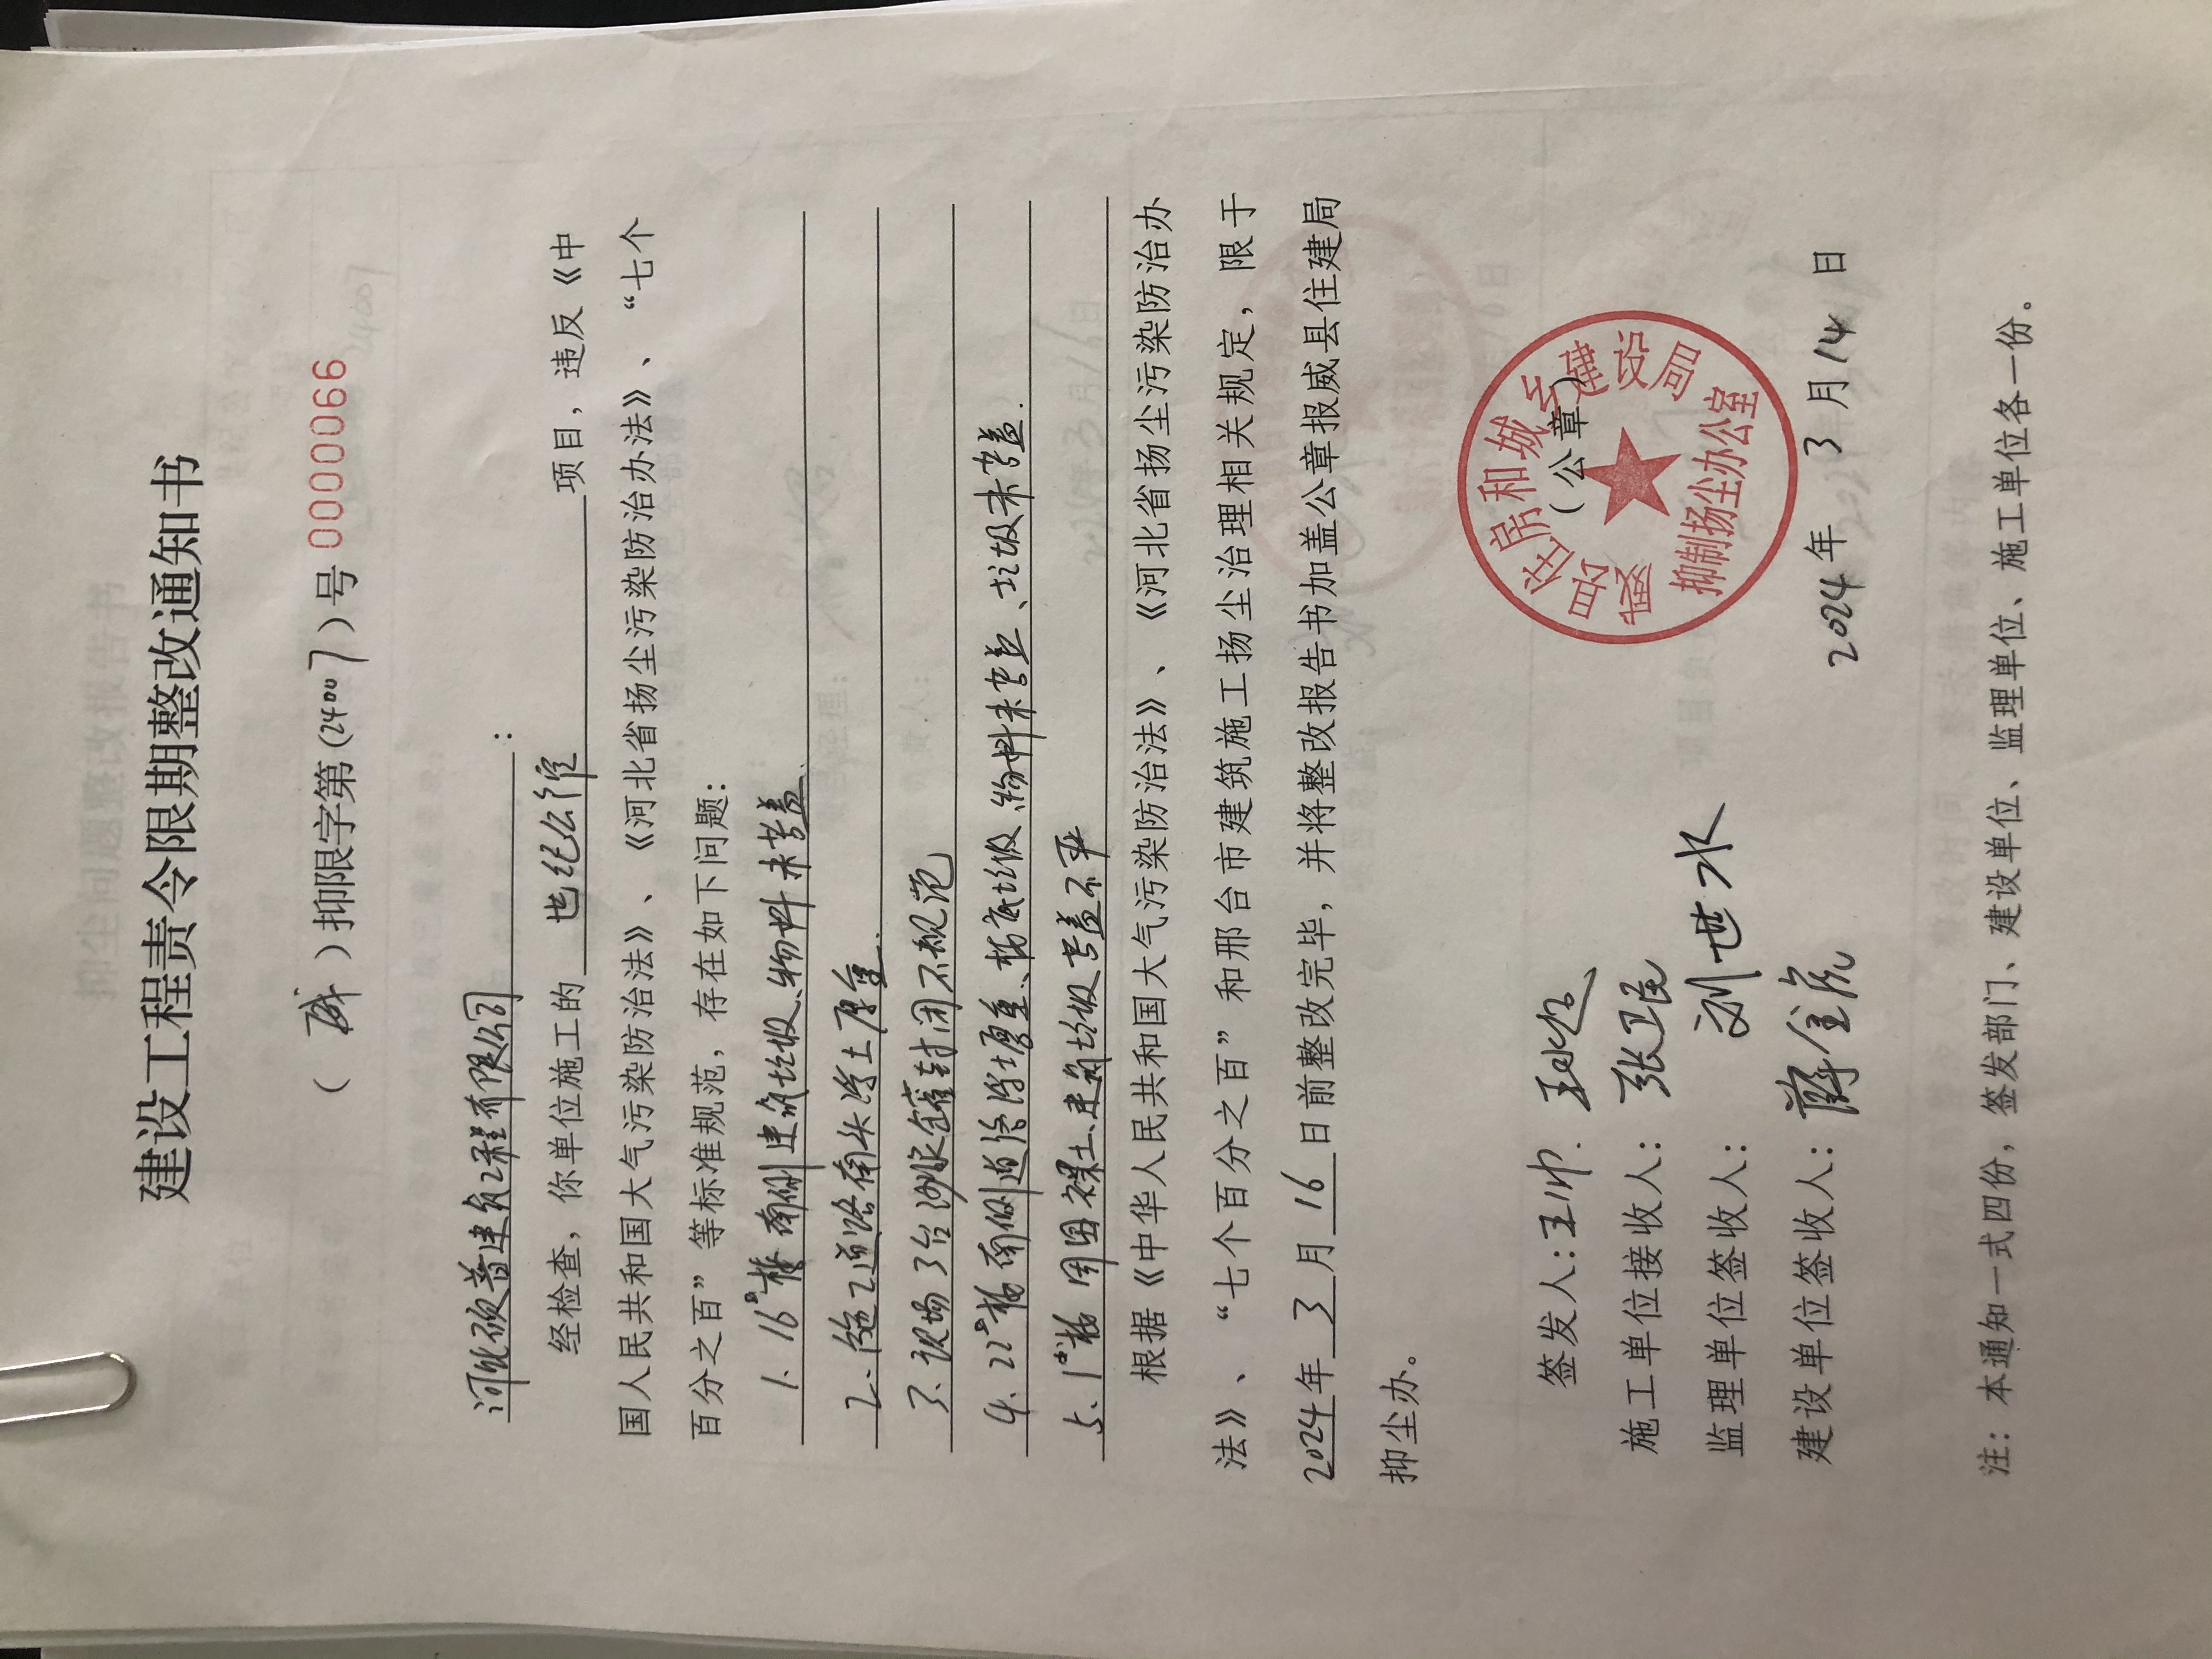 建设工程责令限期整改通知书
（ 威 ）抑限字第(24007)号 0000066
河北硕普建筑工程有限公司：
经检查，你单位施工的 世纪公馆 项目，违反《中
国人民共和国大气污染防治法》、《河北省扬尘污染防治办法》、“七个
百分之百”等标准规范，存在如下问题：
1. 16#楼南侧建筑垃圾、物料未苫盖
2. 施工道路南头浮土厚重.
3. 现场3台砂浆罐封闭不规范
4. 22#楼南侧道路浮土厚重、楼底垃圾、物料未苫盖、垃圾未苫盖.
5. 1#楼周围裸土、建筑垃圾苫盖不严
根据《中华人民共和国大气污染防治法》、《河北省扬尘污染防治办
法》、“七个百分之百”和邢台市建筑施工扬尘治理相关规定，限于
2024年3月16日前整改完毕，并将整改报告书加盖公章报威县住建局
抑尘办。
（公章）
威县住房和城乡建设局
抑制扬尘办公室
签发人：王帅.
施工单位接收人：张卫民
监理单位签收人：刘世水
建设单位签收人：薛金虎
2024年 3月14日
注：本通知一式四份，签发部门、建设单位、监理单位、施工单位各一份。